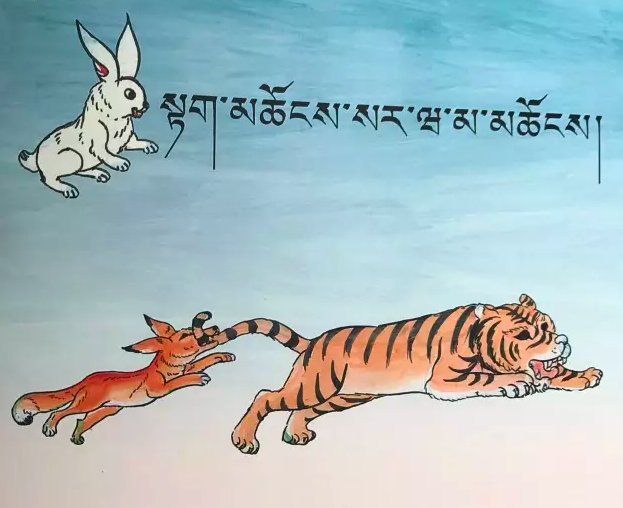 སྟག་མཆོངས་སར་ཝ་མ་མཆོངས།